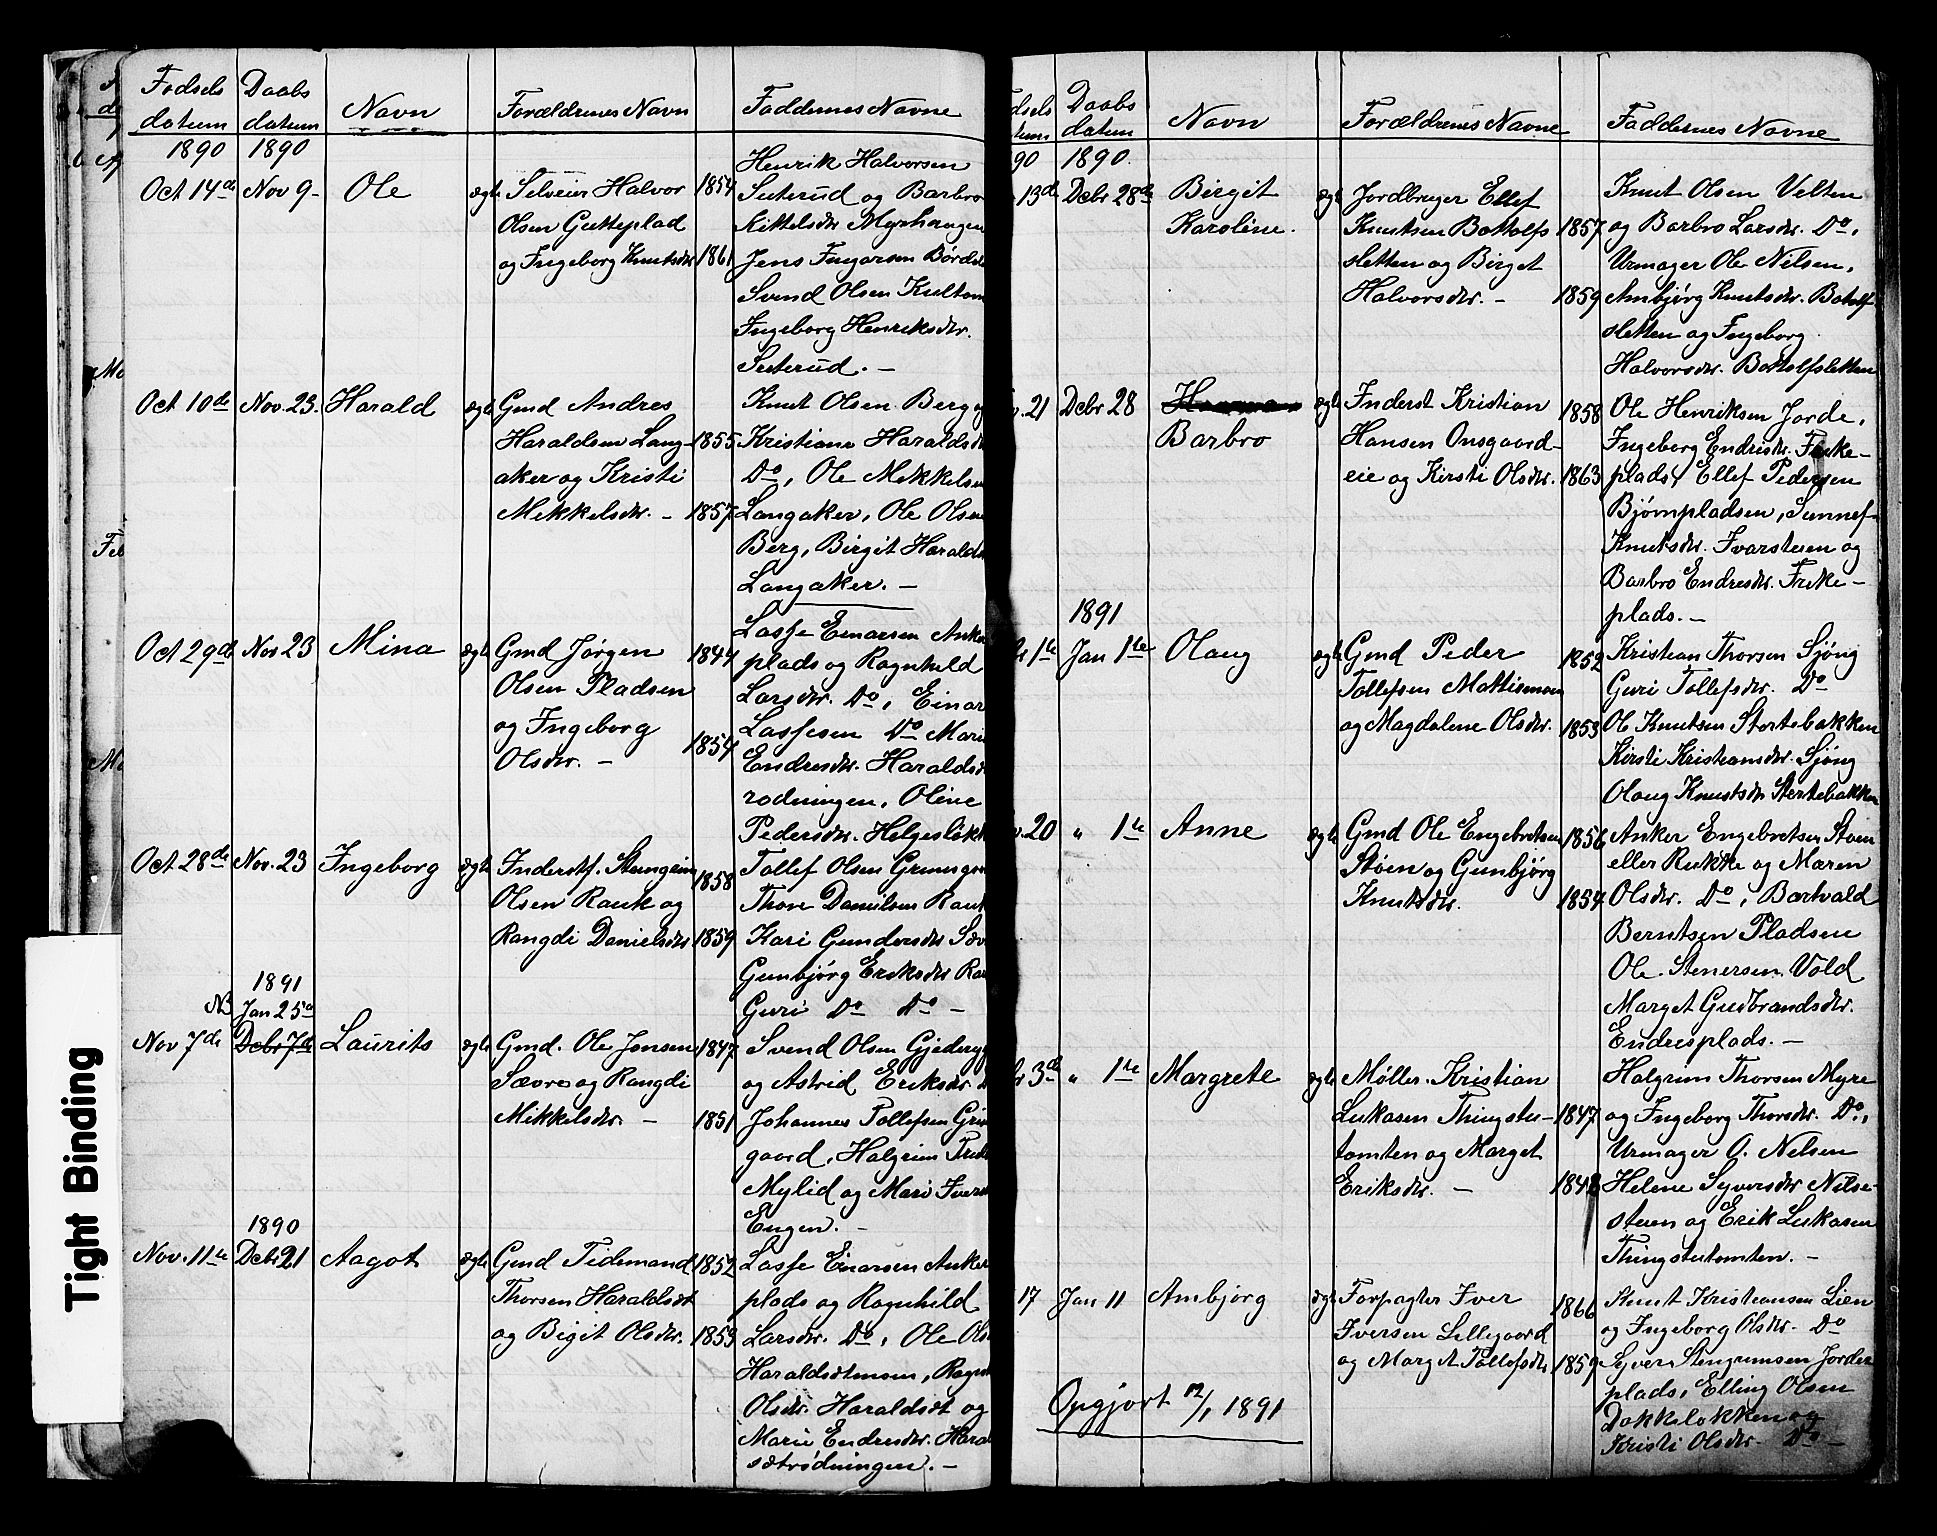 Fødsels datum | Daabs datum | Navn | Forældrenes Navn | Faddernes Navne
1890 1890
Oct 14de Nov 9- Ole ægte
Selveier Halvor 1854
Olsen Gutteplad
og Ingeborg Knutsdtr 1861
Henrik Halvorsen
Suterud og Barbro
Kittelsdtr Myrhaugen
Jens Ingarsen
Svend Olsen
Ingeborg Henriksdtr.
Suterud. -
Oct 10de Nov. 23. Harald ægte
Gmd Andres
Haraldsen Lang- 1855
aker og Kristi
Mikkelsdtr. - 1857
Knut Olsen Berg og
Kristiane Haraldsdt
Do, Ole Mikkelsen
Langaker, Ole Olsen
Berg, Birgit Haralds
Langaker. -
Oct 29de Nov 23 Mina ægte
Gmd Jørgen 1844
Olsen Pladsen
og Ingeborg 1854
Olsdtr. -
Lasse Einarsen Anker
plads og Ragnhild
Larsdtr. Do, Einar
Lassesen Do Mari
Endresdtr. Haraldsæt
rodningen, Oline
Pedersdtr. Helgesløkk
Oct 28de Nov. 23 Ingeborg ægte
Inderstf. Steingrim 1858
Olsen Rauk og
Rangdi Danielsdtr 1859
Tollef Olsen
Thore Danielsen Rauk
Kari Gundersdtr
Gunbjørg Eriksdtr
Guri Do Do -
1891
NB Jan 25de
Nov 7de Debr 7de Laurits ægte
Gmd. Ole Jonsen 1847
Sævre og Rangdi
Mikkelsdtr. - 1851
Svend Olsen
og Astrid Eriksdtr
Johannes Tollefsen
gaard, Halgrim
Mylid og Mari Ivers
Engen. -
1890
Nov. 11te Debr 21 Aagot ægte
Gmd Tidemand 1852
Thorsen Haraldsæt
og Bigit Olsdtr. 1853
Lasse Einarsen Anker
plads og Ragnhild
Larsdtr. Do, Ole Ols
Haraldsætmoen,
Olsdtr. Haraldsæt og
Marie Endresdtr. Haral
sætrødningen. -
dsels tum | Daabs datum | Navn | Forældrenes Navne | Faddernes Navne
90 1890.
13de Debr 28de Birgit ægte
Karoline.
Jordbruger Ellef
Knutsen Bottolfs 1857
sletten og Birget
Halvorsdtr. - 1859
Knut Olsen Velten
og Barbro Larsdtr. Do,
Urmager Ole Nilsen,
Ambjørg Knutsdtr. Botolf
sletten og Ingeborg
Halvorsdtr. Bottolfsletten
v. 21 Debr 28 Barbro ægte
Inderst Kristian 1858
Hansen Onsgaard-
eie og Kirsti Olsdtr. 1863
Ole Henriksen Jorde,
Ingeborg Endrisdtr.
plads, Ellef Pedersen
Bjørnpladsen, Sunnef-
Knutsdtr. Ivarsteren og
Barbro Endresdtr.
plads. -
1891
1te Jan 1te Olaug ægte
Gmd Peder 1852
Tollefsen Mattismoen
og Magdalene Olsdtr. 1853
Kristian Thorsen Sjøng
Guri Tollefsdtr. Do
Ol Knutsen Stortebakken
Kirsti Kristiansdtr. Sjøng
Olaug Knutsdtr Stortebakken
v. 20 " 1te Anne ægte
Gmd Ole Engebretsen 1856
Støen og Gunbjørg
Knutsdtr. 1854
Anker Engebretsen Støen
eller Rukke og Maren
Olsdtr. Do, Bartvald
Berntsen Pladsen
Ole Stenersen Vold
Marget Gudbrandsdtr.
Endresplads. -
3de " 1te Margrete ægte
Møller Kristian
Lukasen Thingstu- 1847
tomten og Marget
Eriksdtr. - 1848
Halgrim Thorsen Myre
og Ingeborg Thorsdtr. Do,
Urmager O. Nilsen
Helene Syversdtr Nilse-
steren og Erik Lukasen
Thingstutomten. -
17 Jan 11 Ambjørg ægte
Forpagter Iver 1866
Iversen Lillegaard
og Marget Tollefsdtr. 1859
Knut Kristiansen Lien
og Ingeborg Olsdtr. Do
Syver Stengrimsen Jorde
plads, Elling Olsen
Dokkeløkken og
Kristi Olsdtr. Do -
Opgjort 12/1 1891
Tight Binding